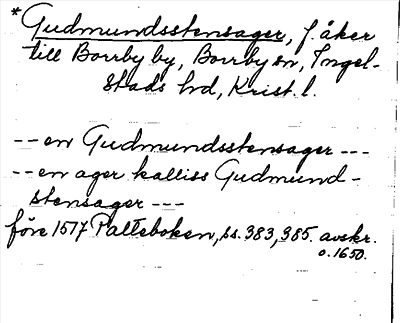 *Gudmundsstensager, f. åker
till Borrby by, Borrby sn, Ingel-
stads hd, Krist. l.
--en Gudmundsstensager---
--en ager kalliss Gudmund-
stensager---
före 1517 Palteboken, ss. 383, 385. avskr.
o. 1650.